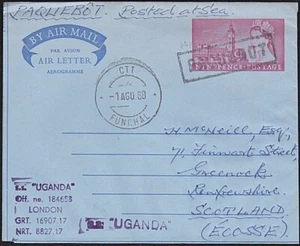 PAQUEBOT. Posted at Sea.
BY AIR MAIL
PAR AVION
AIR LETTER
AEROGRAMME
CTT
-1 AGO 68
FUNCHAL
PAQUEBOT
POSTAGE
H. McNeill, Esq.,
71, Finnart Street,
Greenock,
Renfrewshire,
SCOTLAND
(ECOSSE)
S.S. "UGANDA"
Off. no. 184658
LONDON
GRT. 16907.17
NRT. 8827.17
S.S. "UGANDA"